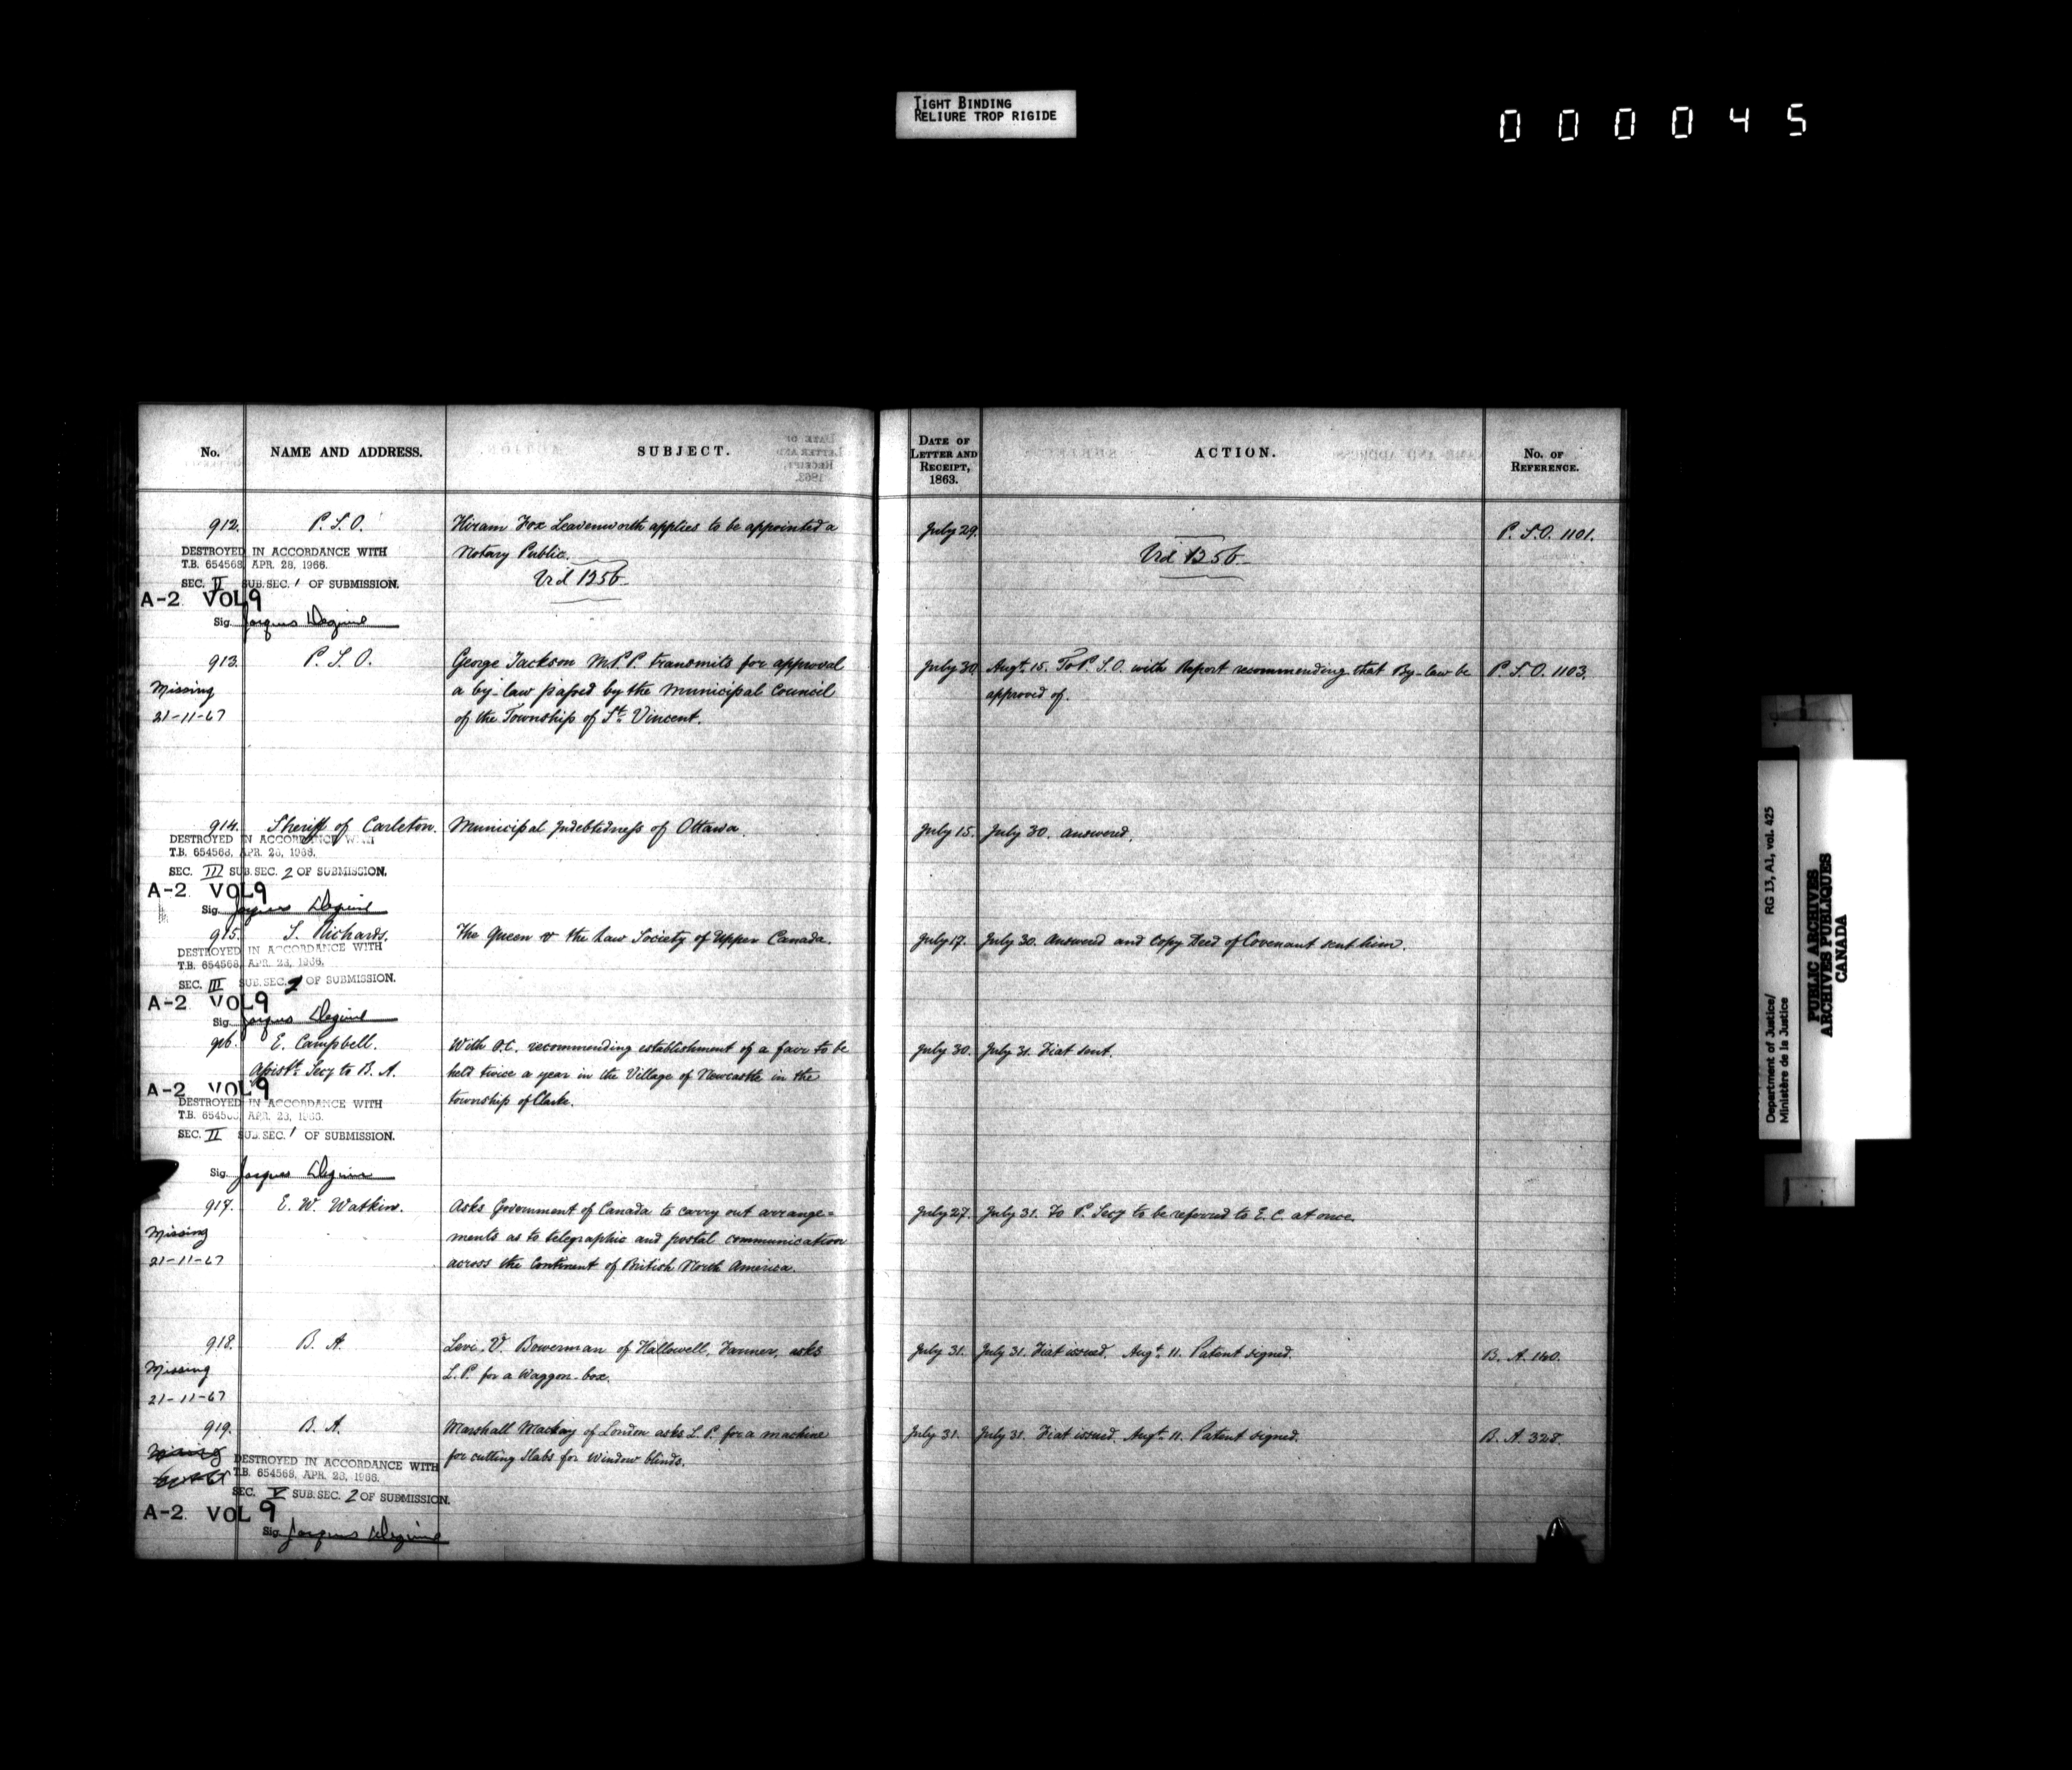 TIGHT BINDING
RELIURE TROP RIGIDE
000045
No.
NAME AND ADDRESS.
SUBJECT.
DATE OF
LETTER AND
RECEIPT,
1863.
ACTION.
No. OF
REFERENCE.
912. P. S. O. Hiram Fox Leavenworth applies to be appointed a July 29. P. S. O. 1101.
Notary Public.
Vid 1256 Vid 1256
DESTROYED IN ACCORDANCE WITH
T.B. 654568, APR. 28, 1966.
SEC. II SUB. SEC. 1 OF SUBMISSION.
A-2 VOL 9
Sig. Jacques
913. P. S. O. George Jackson M.P.P. transmits for approval July 30 Augt. 15. To P. S. O. with Report recommending that By-law be P. S. O. 1103.
Missing a by-law passed by the Municipal Council approved of.
21-11-67 of the Township of St. Vincent.
914. Sheriff of Carleton. Municipal Indebtedness of Ottawa. July 15. July 30. answered.
DESTROYED IN ACCORDANCE WITH
T.B. 654568, APR. 28, 1966.
SEC. III SUB. SEC. 2 OF SUBMISSION.
A-2 VOL 9
Sig. Jacques
915. S. Richards. The Queen v the Law Society of Upper Canada. July 17. July 30. Answered and copy Deed of Covenant sent him.
DESTROYED IN ACCORDANCE WITH
T.B. 654568, APR. 28, 1966.
SEC. III SUB. SEC. 2 OF SUBMISSION.
A-2 VOL 9
Sig. Jacques
916. E. Campbell. With O.C. recommending establishment of a fair to be July 30. July 31. Fiat sent.
Assistt. Secy to B. A. held twice a year in the Village of Newcastle in the
township of Clarke.
A-2 VOL 9
DESTROYED IN ACCORDANCE WITH
T.B. 654568, APR. 28, 1966.
SEC. II SUB. SEC. 1 OF SUBMISSION.
Sig. Jacques
917. E. W. Watkin. Asks Government of Canada to carry out arrange= July 27. July 31. To P. Secy to be referred to E. C. at once.
Missing ments as to telegraphic and postal communication
21-11-67 across the Continent of British North America.
918. B. A. Levi. V. Bowerman of Hallowell, Farmer, asks July 31. July 31. Fiat issued. Augt. 11. Patent signed. B. A. 140.
Missing L. P. for a Waggon-box.
21-11-67
919. B. A. Marshall Mackay of London asks L. P. for a machine July 31. July 31. Fiat issued. Augt. 11. Patent signed. B. A. 328.
Missing for cutting Slabs for Window blinds.
DESTROYED IN ACCORDANCE WITH
T.B. 654568, APR. 28, 1966.
SEC. V SUB. SEC. 2 OF SUBMISSION.
A-2 VOL 9
Sig. Jacques
Department of Justice/ RG 13, A1, vol. 425
Ministère de la Justice
PUBLIC ARCHIVES
ARCHIVES PUBLIQUES
CANADA